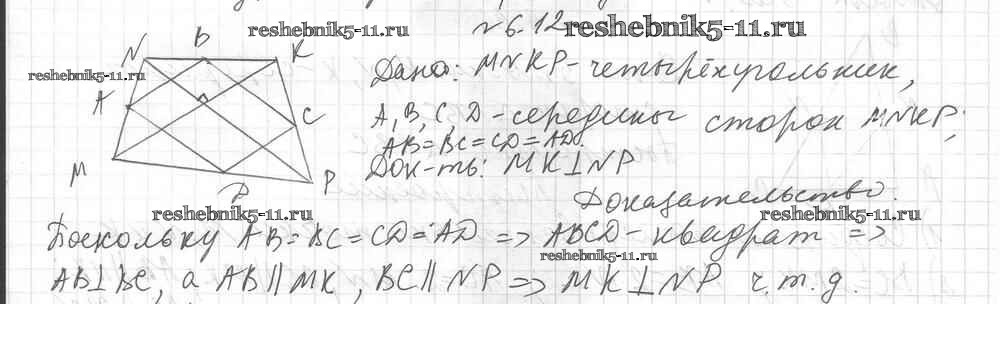 reshebnik5-11.ru №6.12 reshebnik5-11.ru
N B K
reshebnik5-11.ru
Дано: MNKP - четырёхугольник,
A
C
A, B, C, D - середины сторон MNKP;
AB = BC = CD = AD.
M
D
P
Док-ть: MK ⊥ NP
Доказательство.
reshebnik5-11.ru reshebnik5-11.ru
Поскольку AB = BC = CD = AD => ABCD - квадрат =>
reshebnik5-11.ru
AB ⊥ BC, а AB || MK, BC || NP => MK ⊥ NP ч.т.д.